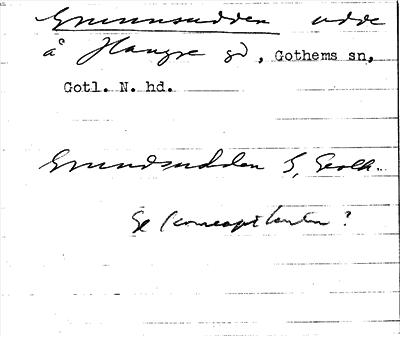 Grunnsudden udde
å Hangre gd, Gothems sn,
Gotl. N. hd.
Grundsudden S, Geolk.
Se konceptkartan?